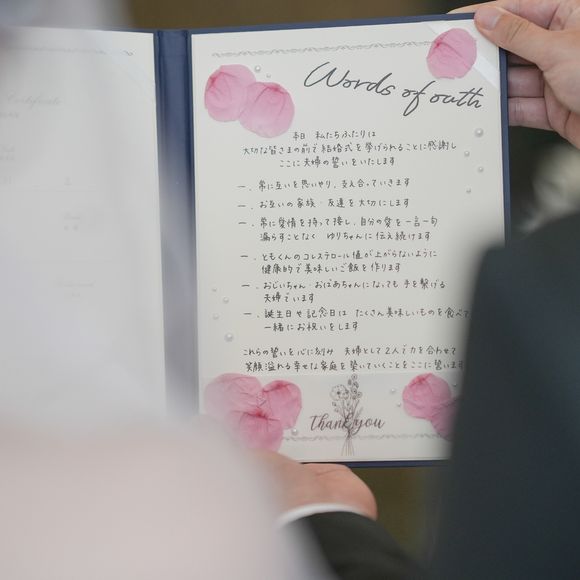 Certificate
Words of outh
本日 私たちふたりは
大切な皆さまの前で結婚式を挙げられることに感謝し
ここに夫婦の誓いをいたします
一．常に互いを思いやり、支え合っていきます
一．お互いの家族・友達を大切にします
一．常に愛情を持って接し、自分の愛を一言一句
漏らすことなく ゆりちゃんに伝え続けます
一．ともくんのコレステロール値が上がらないように
健康的で美味しいご飯を作ります
一．おじいちゃん・おばあちゃんになっても手を繋げる
夫婦でいます
一．誕生日や記念日は たくさん美味しいものを食べて
一緒にお祝いをします
これらの誓いを心に刻み 夫婦として2人で力を合わせて
笑顔溢れる幸せな家庭を築いていくことをここに誓います
thank you